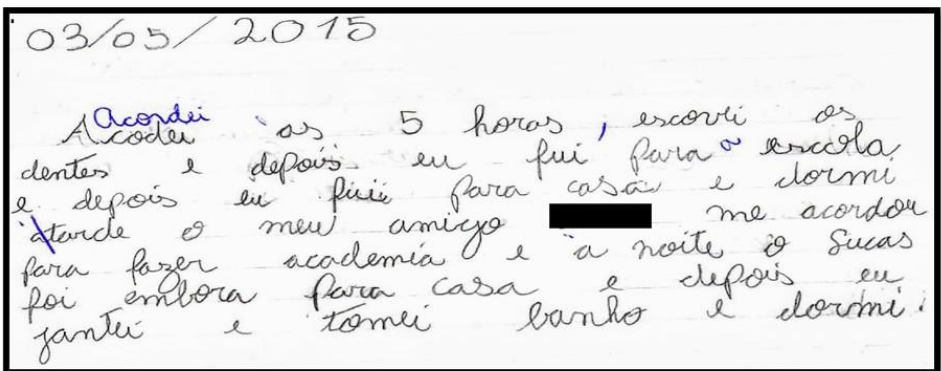 03/05/2015
Acordei
Acodei às 5 horas, escovei os
dentes e depois eu fui para a escola
e depois eu fui para casa e dormi
atarde o meu amigo me acordor
para fazer academia e à noite o Lucas
foi embora para casa e depois eu
jantei e tomei banho e dormi.